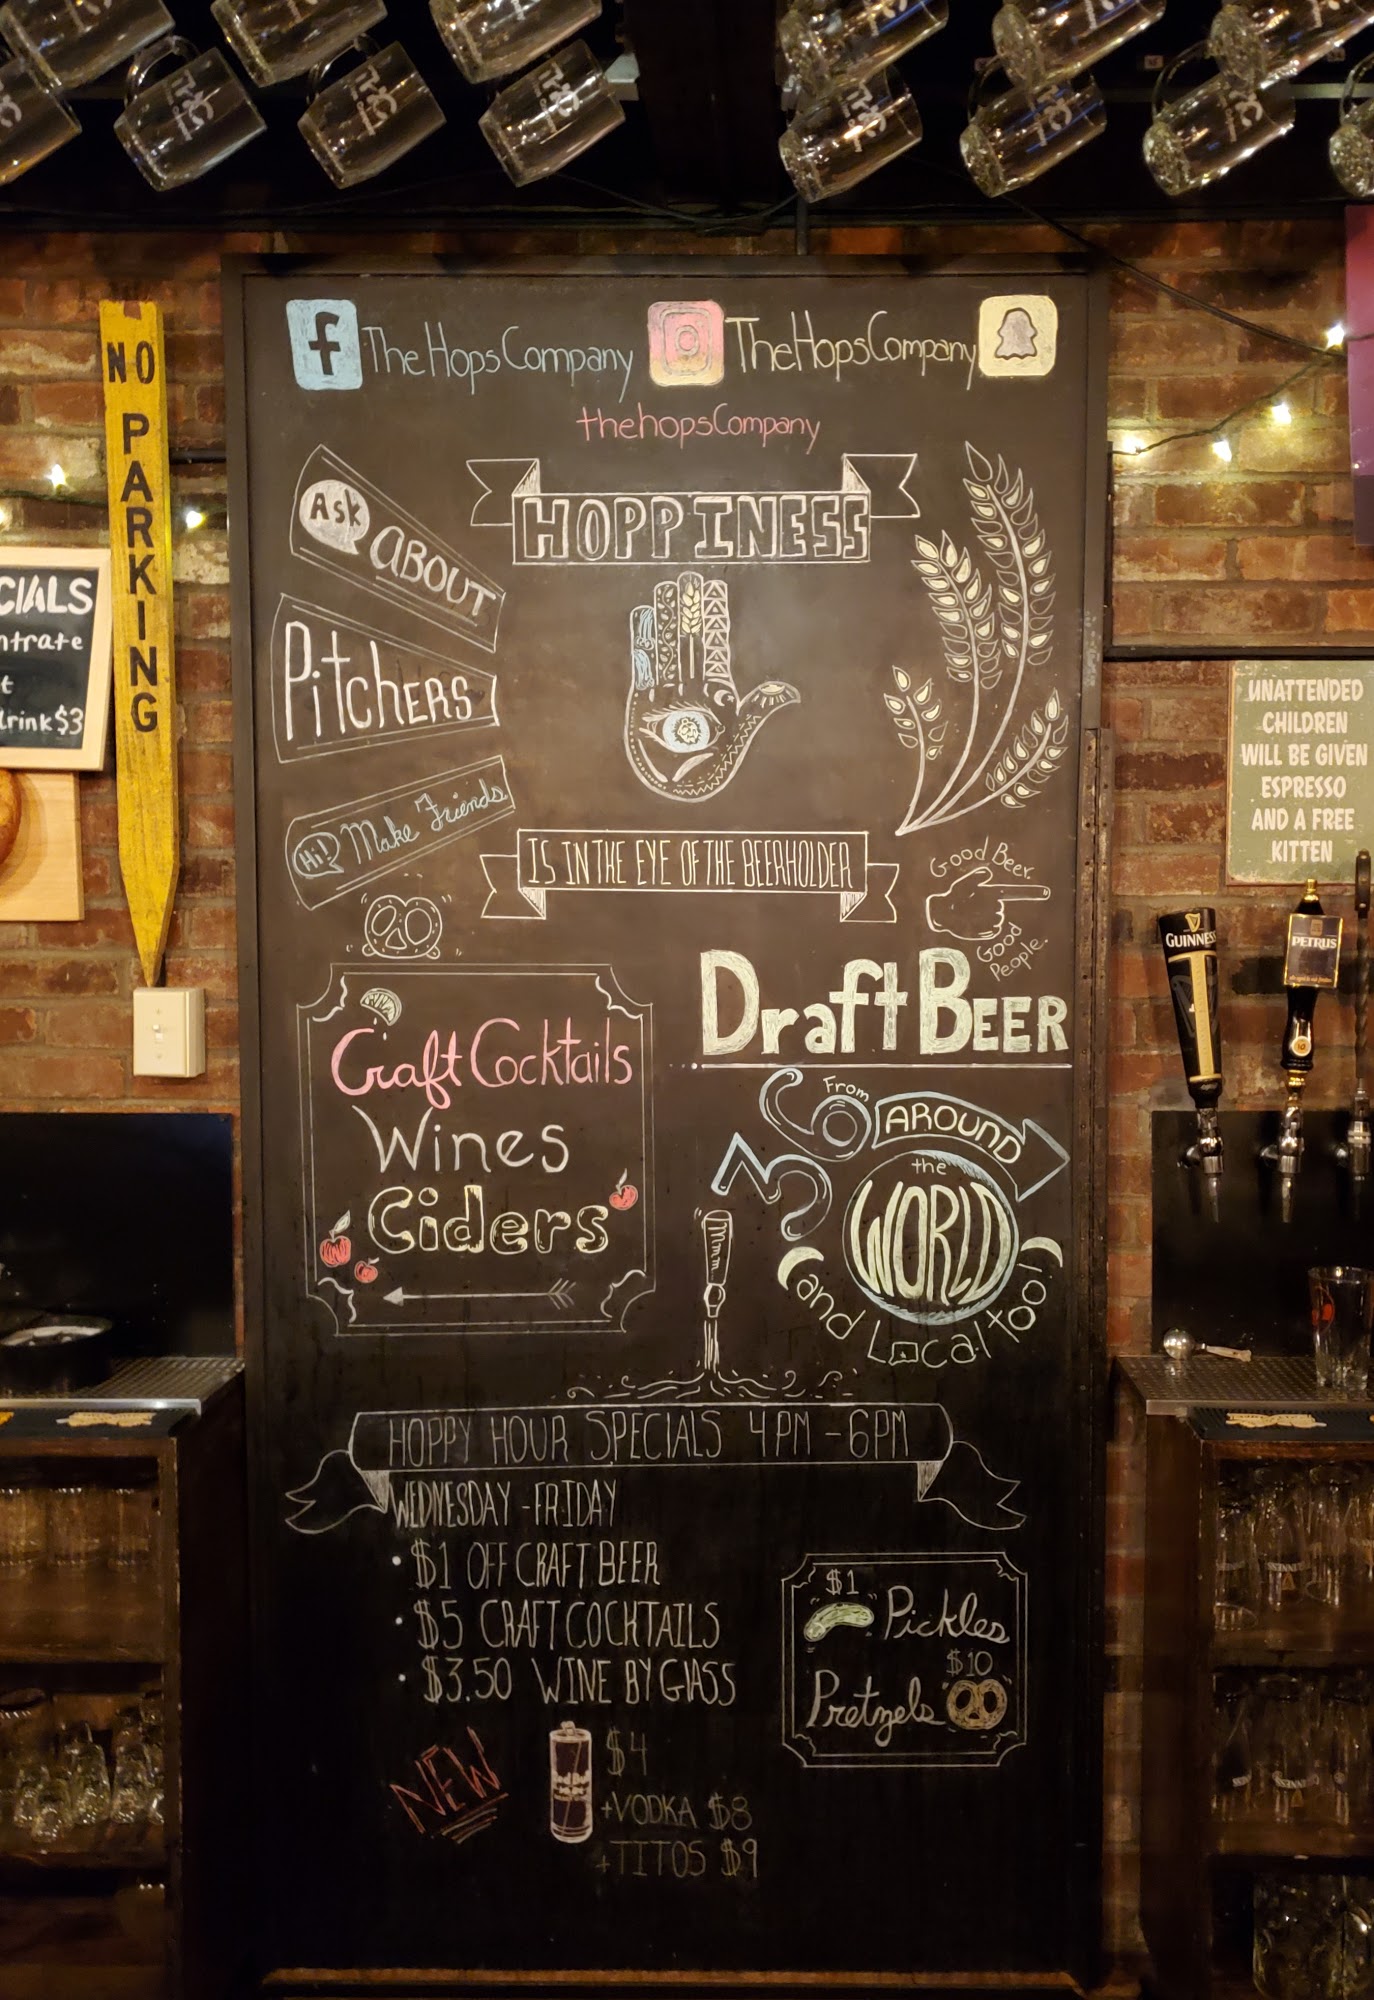 TheHopsCompany
TheHopsCompany
thehopsCompany
NO PARKING
Ask
ABOUT
PitCHERS
Hi!
Make Friends
HOPPINESS
IS IN THE EYE OF THE BEERHOLDER
Good Beer.
Good
People.
CIALS
ntrate
t
drink $3
UNATTENDED
CHILDREN
WILL BE GIVEN
ESPRESSO
AND A FREE
KITTEN
GUINNESS
PETRUS
Craft Cocktails
Wines
Ciders
Draft BEER
36
From
AROUND
the
WORLD
and Local too!
HOPPY HOUR SPECIALS 4PM - 6PM
WEDNESDAY - FRIDAY
• $1 OFF CRAFT BEER
• $5 CRAFT COCKTAILS
• $3.50 WINE BY GLASS
$1
Pickles
$10
Pretzels
NEW
Red Bull
$4
+VODKA $8
+TITOS $9